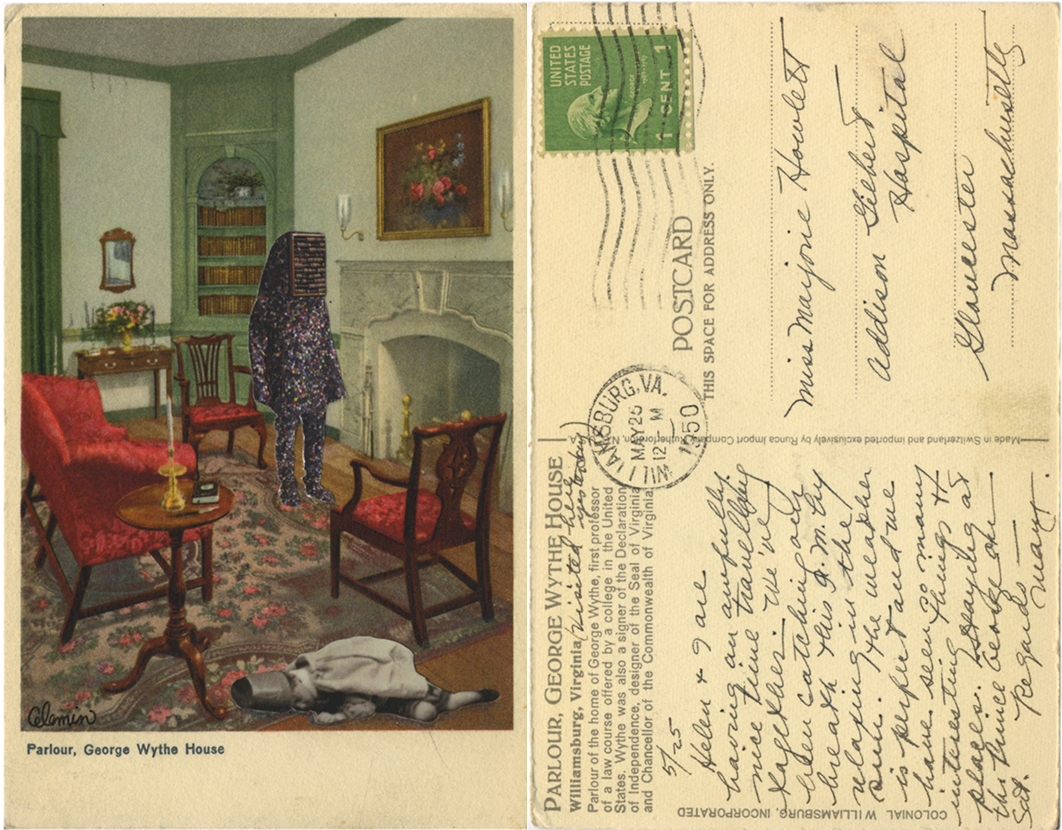 Clemin
Parlour, George Wythe House
UNITED
STATES
POSTAGE
1 CENT 1
WILLIAMSBURG, VA.
MAY 25
12 M
1950
POSTCARD
THIS SPACE FOR ADDRESS ONLY.
Miss Marjorie Howlett
Addison Gilbert
Hospital
Gloucester
Massachusetts
Made in Switzerland and imported exclusively by Runca Import Company, Rutherford, N.
PARLOUR, GEORGE WYTHE HOUSE
Williamsburg, Virginia (Visited here
yesterday)
Parlour of the home of George Wythe, first professor
of a law course offered by a college in the United
States. Wythe was also a signer of the Declaration
of Independence, designer of the Seal of Virginia
and Chancellor of the Commonwealth of Virginia
5/25
Helen & I are
having an awfully
nice time travelling
together. We've
been catching our
breath this A.M. by
relaxing in the
sun. The weather
is perfect and we
have seen so many
interesting things &
places. Staying at
the Prince George Ho
Sat. Regards —
Mary.
COLONIAL WILLIAMSBURG, INCORPORATED